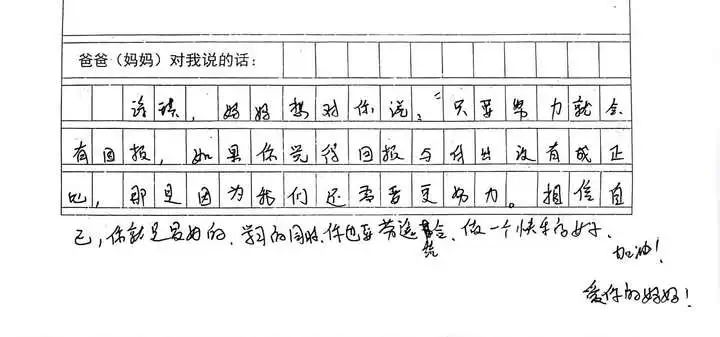 爸爸（妈妈）对我说的话：
妈妈想对你说："只要努力就会
有回报，如果你觉得回报与付出没有成正
比，那是因为我们还需要更努力。相信自
己，你就是最好的、学习的同时，你也要劳逸结合、做一个快乐的好子、
加油！
爱你的妈妈！